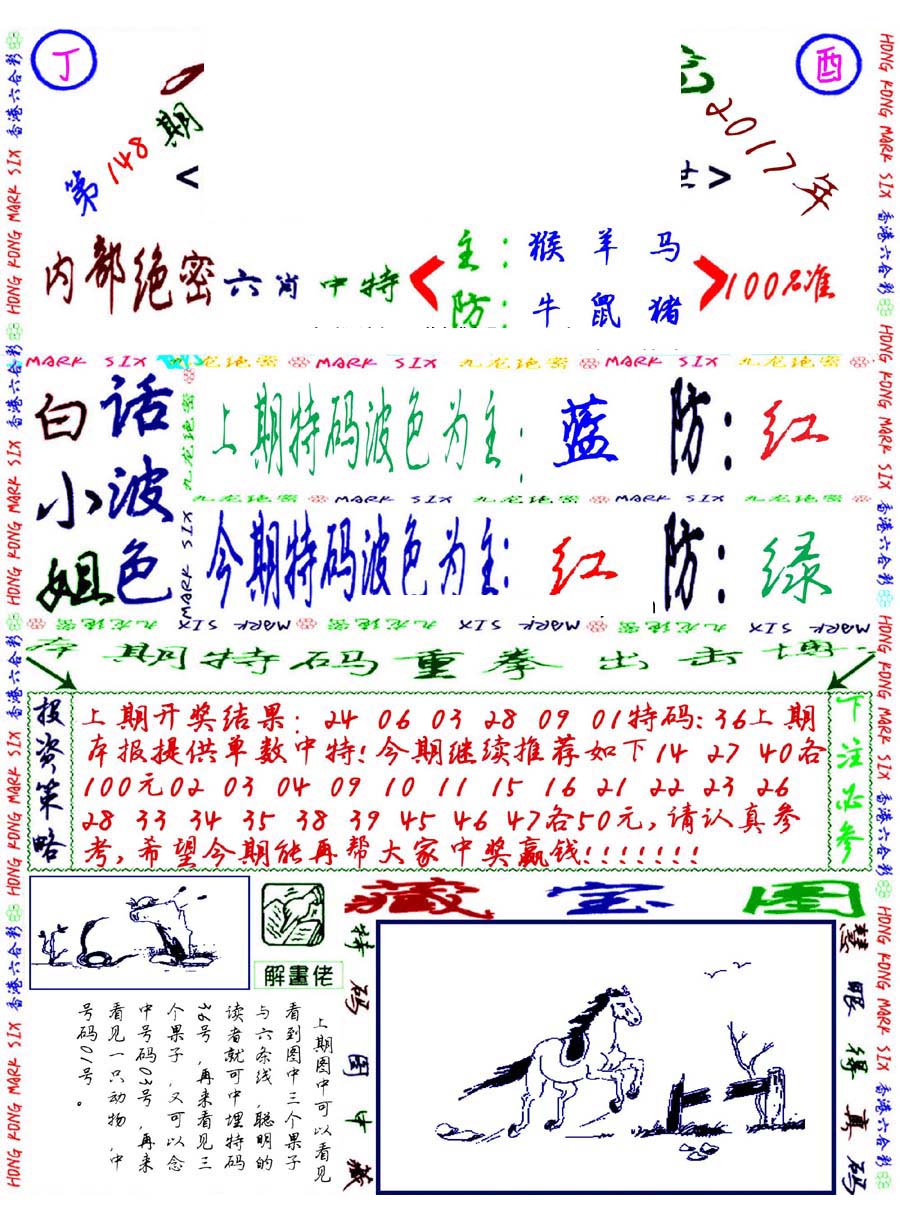 丁
酉
第148期
2017年
<
>
内部绝密六肖中特
主：猴 羊 马
防：牛 鼠 猪
100%准
MARK SIX 九龙绝密 MARK SIX 九龙绝密 MARK SIX 九龙绝密
白话小波姐色
上期特码波色为主：蓝 防：红
九龙绝密 MARK SIX 九龙绝密 MARK SIX 九龙绝密
今期特码波色为主：红 防：绿
九龙绝密 MARK SIX 九龙绝密 MARK SIX 九龙绝密 MARK SIX
期特码重拳出击
投资策略
上期开奖结果：24 06 03 28 09 01特码：36上期
本报提供单数中特！今期继续推荐如下14 27 40各
100元02 03 04 09 10 11 15 16 21 22 23 26
28 33 34 35 38 39 45 46 47各50元，请认真参
考，希望今期能再帮大家中奖赢钱！！！！！！！
下注必参
解畫佬
上期图中可以看见
看到图中三个果子
与六条线，聪明的
读者就可中埋特码
36号，再来看见三
个果子，又可以念
中号码03号，再来
看见一只动物，中
号码01号。
藏宝图
特码图中藏
慧眼得真码
HONG KONG MARK SIX 香港六合彩
HONG KONG MARK SIX 香港六合彩